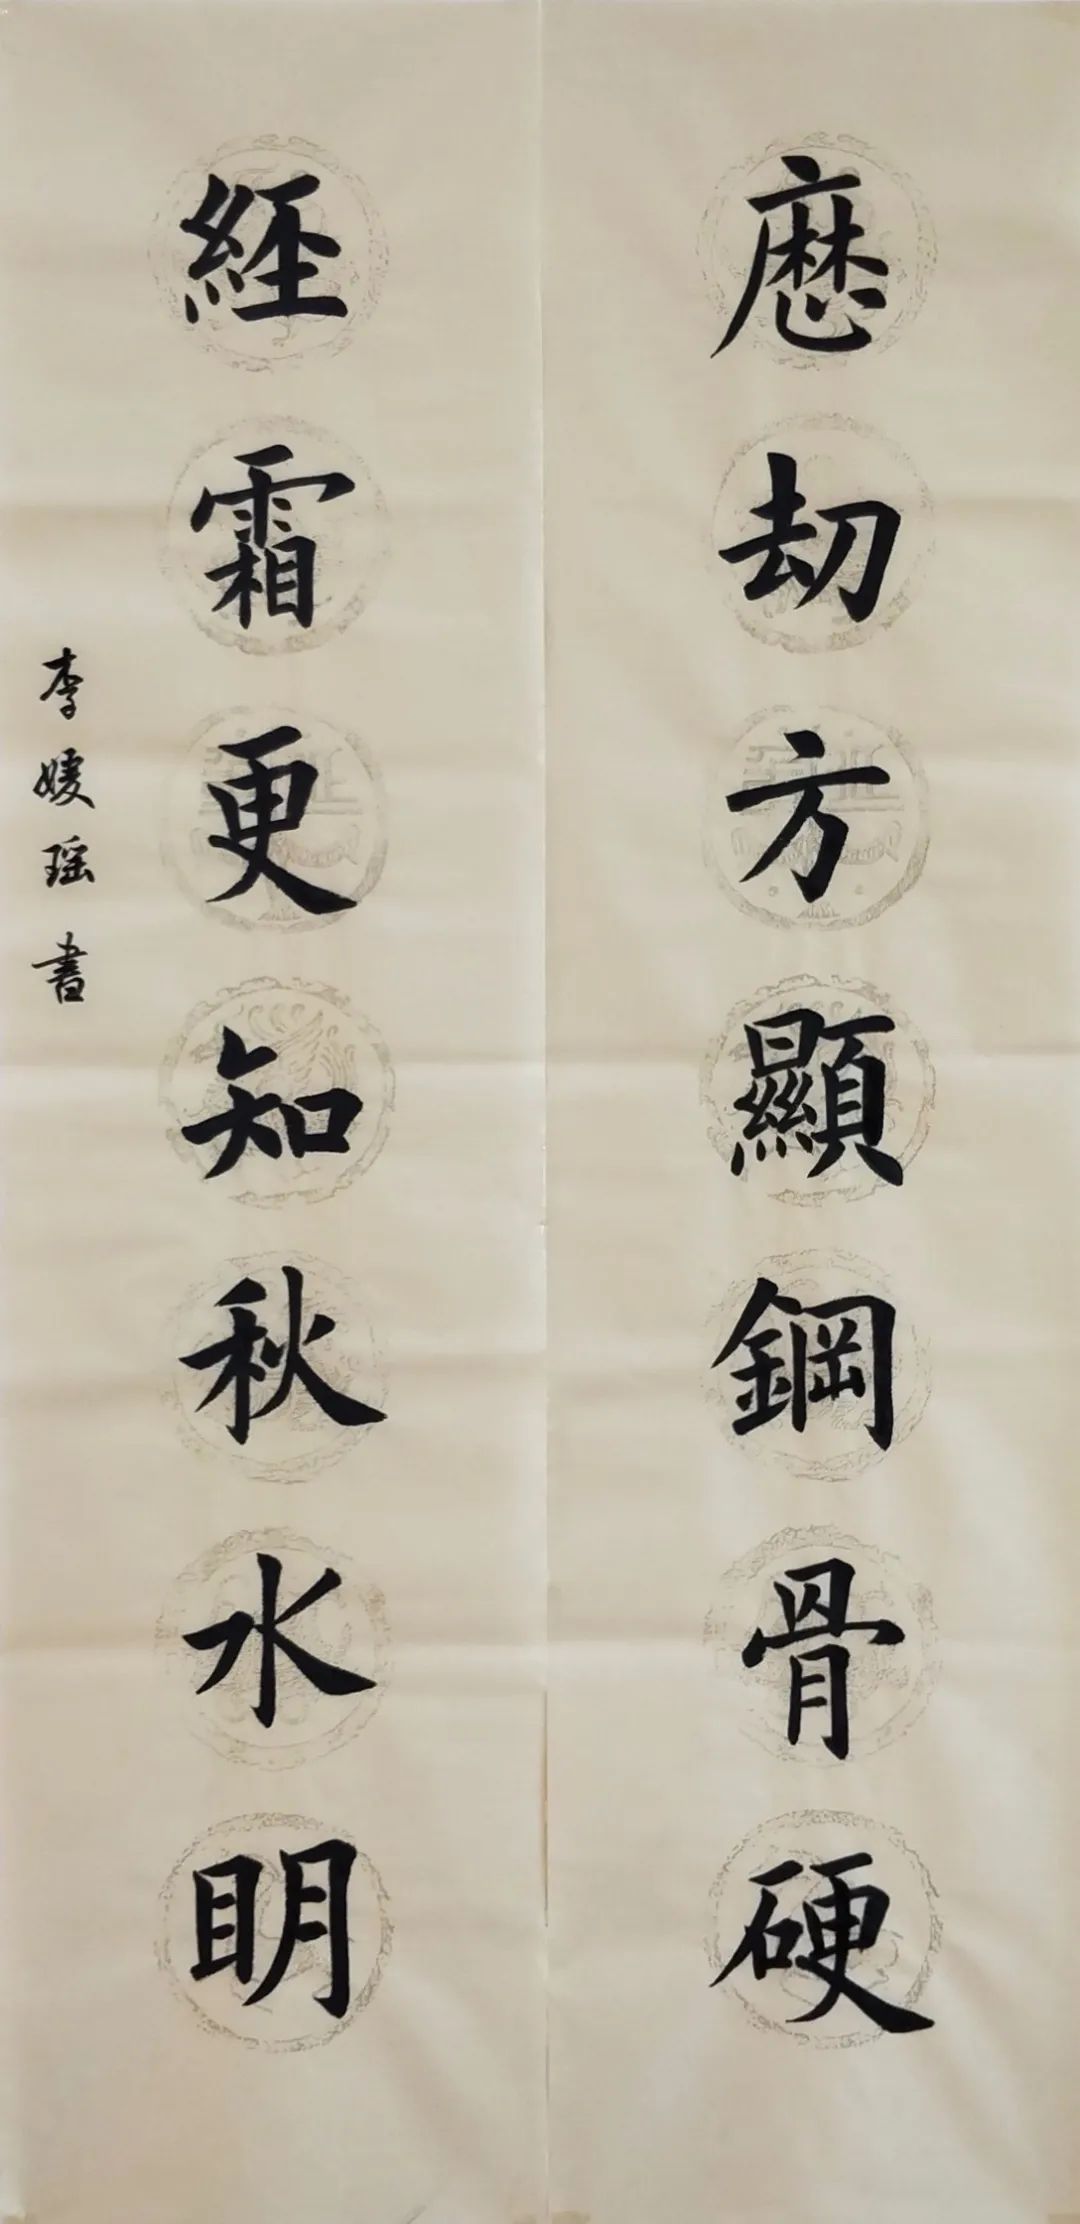 歷刼方顯鋼骨硬
經霜更知秋水眀
李媛瑶書